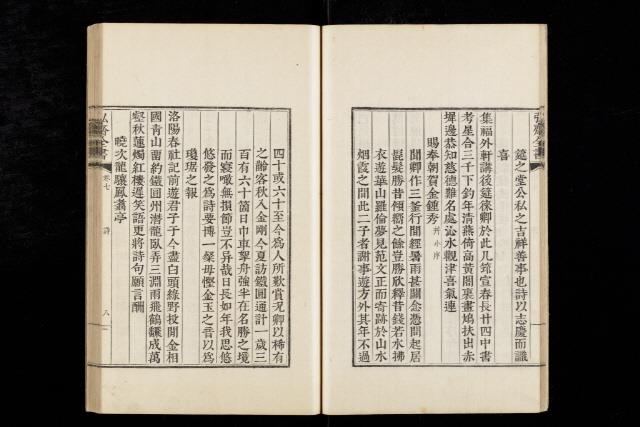 筵之堂公私之吉祥善事也詩以志慶而識
喜
集福外軒講後筵徠卿於此几筵宣春長廿四中書
考星合三千下釣年清燕倚高黃閣裏畫鳩扶出赤
墀邊恭知慈德難名處沁水觀津喜氣連
賜奉朝賀金鍾秀 并小序
聞卿作三釜行閒經暑雨甚關念憑問起居
髭髮勝昔傾嚮之餘豈勝欣釋昔錢若水拂
衣遊華山羅倫夢見范文正而寄跡於山水
烟霞之間此二子者謝事遊方外其年不過
四十或六十至今爲人所歎賞況卿以稀有
之齡客秋入金剛今夏訪鐵圓通計一歲三
百有六十箇日巾車拏舟強半在名勝之境
而寢噉無損節豈不异哉日長如年我思悠
悠發之爲詩要博一粲毋慳金玉之音以爲
瓊琚之報
洛陽春社記前遊君子于今盡白頭綠野投閒金相
國青山留約鐵圓州潛龍臥弄三淵雨飛鶴飜成萬
壑秋蓮燭紅樓遲笑語更將詩句願言酬
曉次龍驤鳳翥亭
弘齋全書
卷七
詩
八